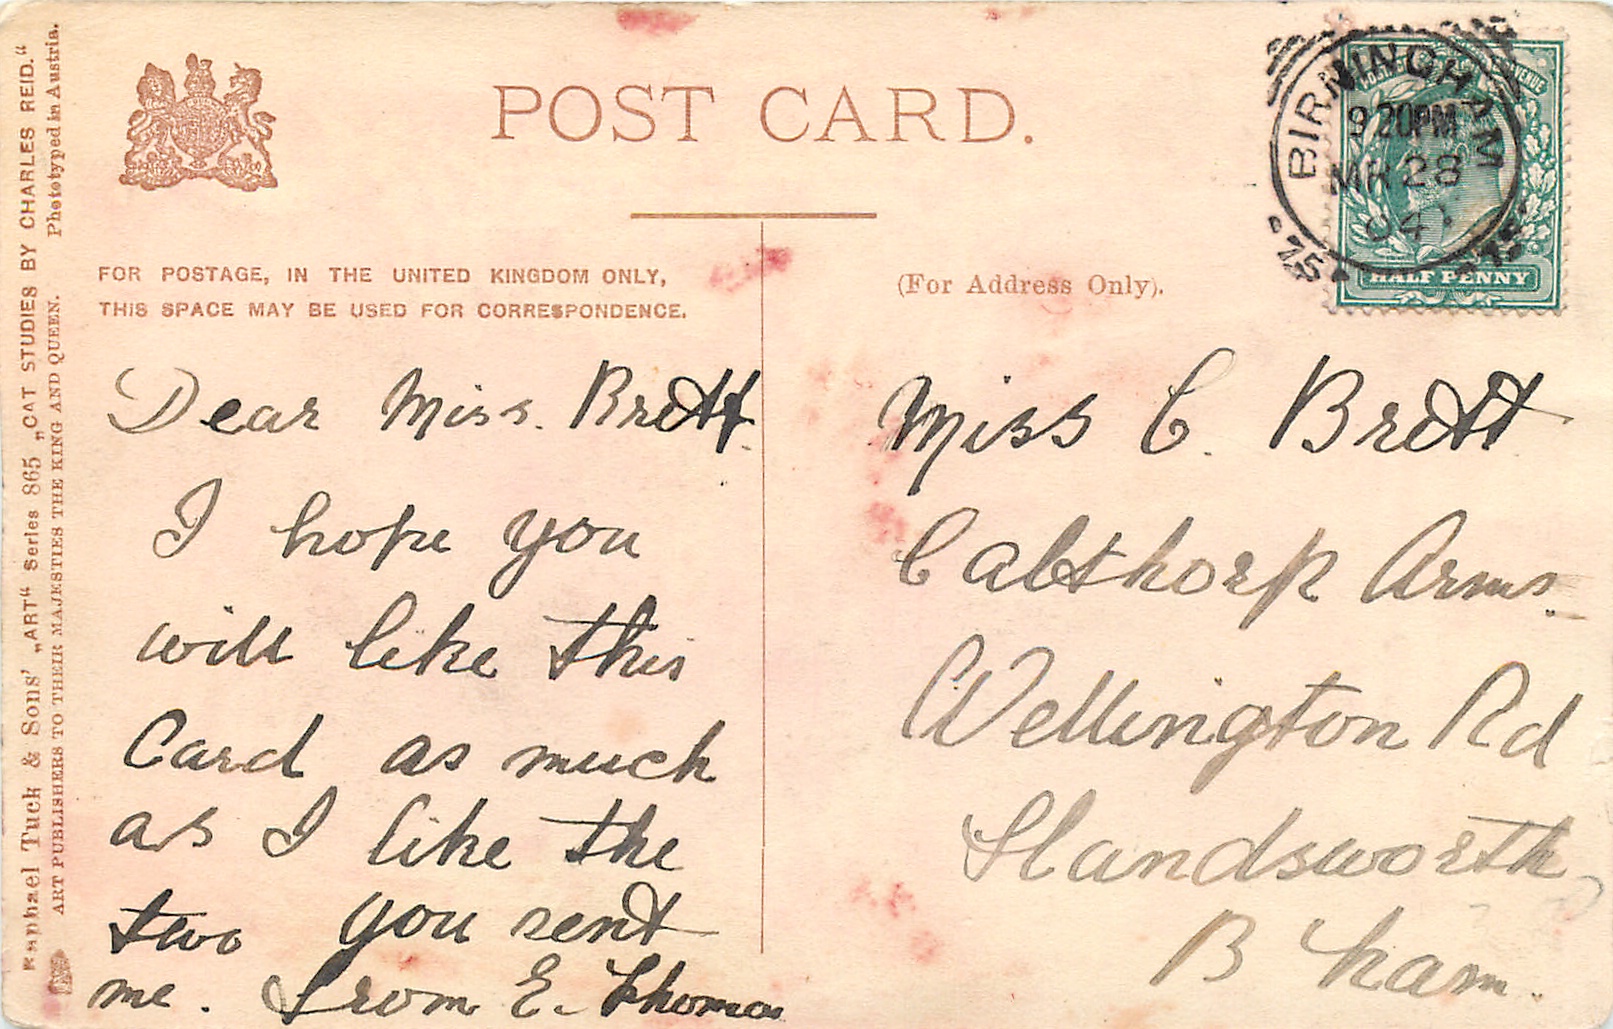 POST CARD.
FOR POSTAGE, IN THE UNITED KINGDOM ONLY,
THIS SPACE MAY BE USED FOR CORRESPONDENCE.
(For Address Only).
BIRMINGHAM
9.20PM
MR 28
04
75
75
HALF PENNY
Dear Miss. Brett.
I hope you
will like this
Card as much
as I like the
two you sent
me. From E. Thomas
Miss C. Brett
Calthorp Arms.
Wellington Rd
Handsworth,
B ham.
Raphael Tuck & Sons' „ART“ Series 865 „CAT STUDIES BY CHARLES REID.“
ART PUBLISHERS TO THEIR MAJESTIES THE KING AND QUEEN. Phototyped in Austria.